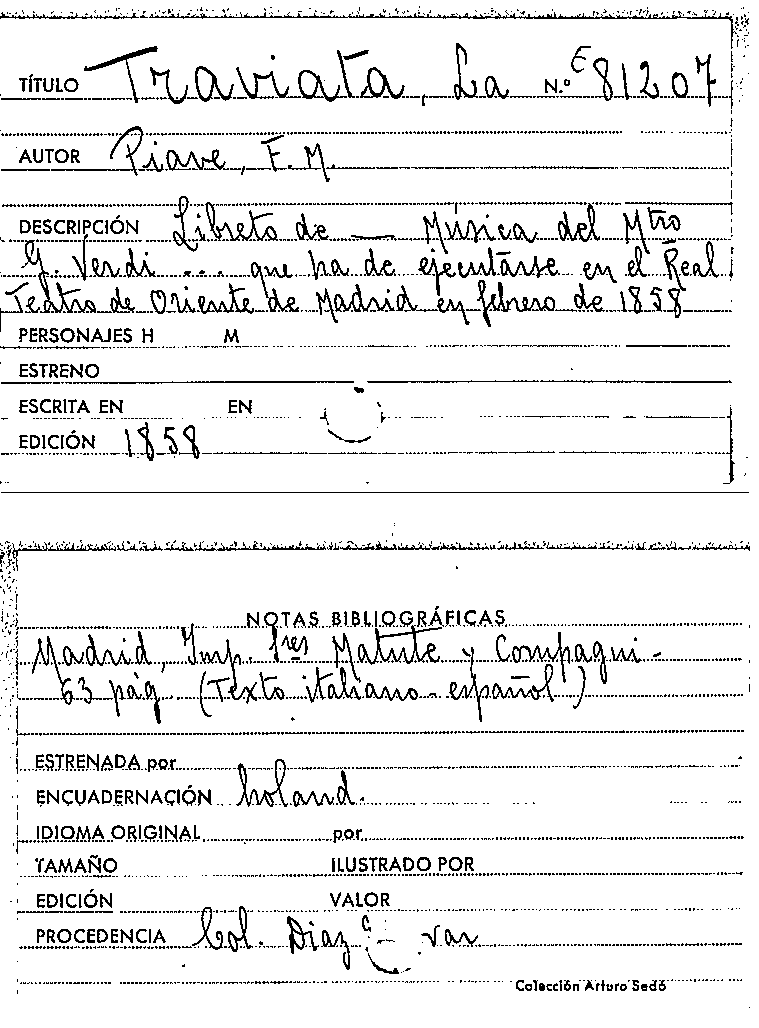 TÍTULO Traviata, La N.º E 81207
AUTOR Piave, F. M.
DESCRIPCIÓN Libreto de — Música del Mtro
G. Verdi ... que ha de ejecutarse en el Real
Teatro de Oriente de Madrid en febrero de 1858
PERSONAJES H M
ESTRENO
ESCRITA EN EN
EDICIÓN 1858
NOTAS BIBLIOGRÁFICAS
Madrid, Imp. Sres Matute y Compagni -
63 pág. (Texto italiano-español)
ESTRENADA por
ENCUADERNACIÓN holand.
IDIOMA ORIGINAL por
TAMAÑO ILUSTRADO POR
EDICIÓN VALOR
PROCEDENCIA Col. Diaz
Colección Arturo Sedó